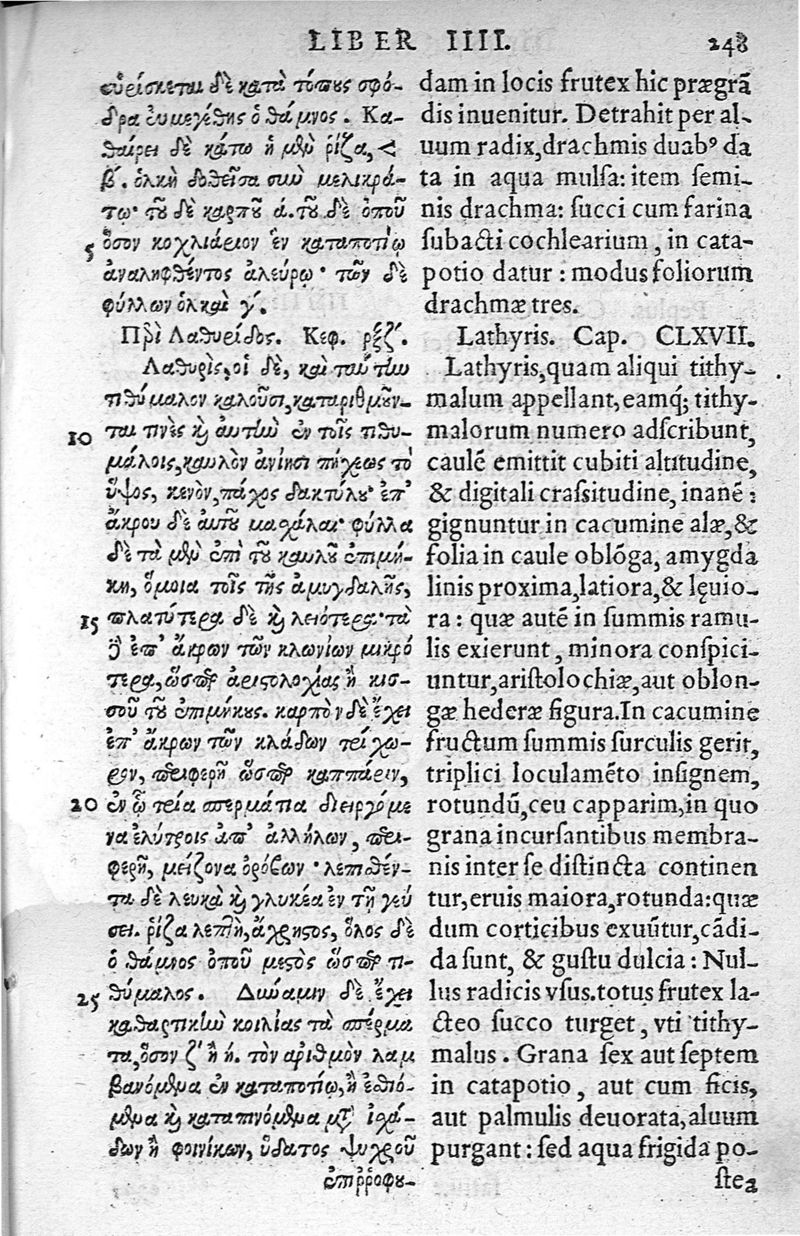 LIBER IIII. 248
εὑρίσκεται δὲ κατὰ τόπους σφό-
δρα εὐμεγέθης ὁ θάμνος. Κα-
θαίρει δὲ κάτω ἡ μὲν ῥίζα, <
β΄. ὁλκὴ δοθεῖσα σὺν μελικρά-
τῳ· τοῦ δὲ καρποῦ ἀ. τοῦ δὲ ὀποῦ
5 ὅσον κοχλιάριον ἓν καταποτίῳ
ἀναληφθέντος ἀλεύρῳ· τῶν δὲ
φύλλων ὁλκαὶ γ΄.
Περὶ Λαθυρίδος. Κεφ. ρξζ΄.
Λαθυρὶς, οἱ δὲ, καὶ ταύτην
τιθύμαλον καλοῦσι, καταριθμοῦν-
10 ται τινὲς καὶ αὐτὴν ἐν τοῖς τιθυ-
μάλοις, καυλὸν ἀνίησι πήχεως τὸ
ὕψος, κενὸν, πάχος δακτύλου· ἐπ'
ἄκρου δὲ αὐτοῦ μαχάλαι· φύλλα
δὲ τὰ μὲν ἐπὶ τοῦ καυλοῦ ἐπιμή-
κη, ὅμοια τοῖς τῆς ἀμυγδαλῆς,
15 πλατύτερα δὲ καὶ λειότερα· τὰ
δ' ἐπ' ἄκρων τῶν κλωνίων μικρό
τερα, ὥσπερ ἀριστολοχίας ἢ κισ-
σοῦ τοῦ ἐπιμήκους. καρπὸν δὲ ἔχει
ἐπ' ἄκρων τῶν κλάδων τρίχω-
ρον, περιφερῆ ὥσπερ κάππαριν,
20 ἐν ᾧ τρία σπερμάτια διειργόμε
να ἐλύτροις ἀπ' ἀλλήλων, περι-
φερῆ, μείζονα ὀρόβων· λεπισθέν-
τα δὲ λευκὰ καὶ γλυκέα ἐν τῇ γεύ
σει. ῥίζα λεπτὴ, ἄχρηστος, ὅλος δὲ
ὁ θάμνος ὀποῦ μεστὸς ὥσπερ τι-
25 θύμαλος. Δύναμιν δὲ ἔχει
καθαρτικὴν κοιλίας τὰ σπέρμα
τα, ὅσον ζ΄ ἢ ή. τὸν ἀριθμὸν λαμ
βανόμενα ἐν καταποτίῳ, ἢ ἐσθιό-
μενα καὶ καταπινόμενα μετ' ἰσχά-
δων ἢ φοινίκων, ὕδατος ψυχροῦ
ἐπιῤῥοφου-
dam in locis frutex hic prægrã
dis inuenitur. Detrahit per al-
uum radix, drachmis duabꝰ da
ta in aqua mulsa: item semi-
nis drachma: succi cum farina
subacti cochlearium, in cata-
potio datur: modus foliorum
drachmæ tres.
Lathyris. Cap. CLXVII.
Lathyris, quam aliqui tithy-
malum appellant, eamq́; tithy-
malorum numero adscribunt,
caulẽ emittit cubiti altitudine,
& digitali crassitudine, inanẽ:
gignuntur in cacumine alæ, &
folia in caule oblõga, amygda
linis proxima, latiora, & lęuio-
ra: quæ autẽ in summis ramu-
lis exierunt, minora conspici-
untur, aristolochiæ, aut oblon-
gæ hederæ figura. In cacumine
fructum summis surculis gerit,
triplici loculamẽto insignem,
rotundũ, ceu capparim, in quo
grana incursantibus membra-
nis inter se distincta continen
tur, eruis maiora, rotunda: quæ
dum corticibus exuũtur, cãdi-
da sunt, & gustu dulcia: Nul-
lus radicis vsus. totus frutex la-
cteo succo turget, vti tithy-
malus. Grana sex aut septem
in catapotio, aut cum ficis,
aut palmulis deuorata, aluum
purgant: sed aqua frigida po-
stea